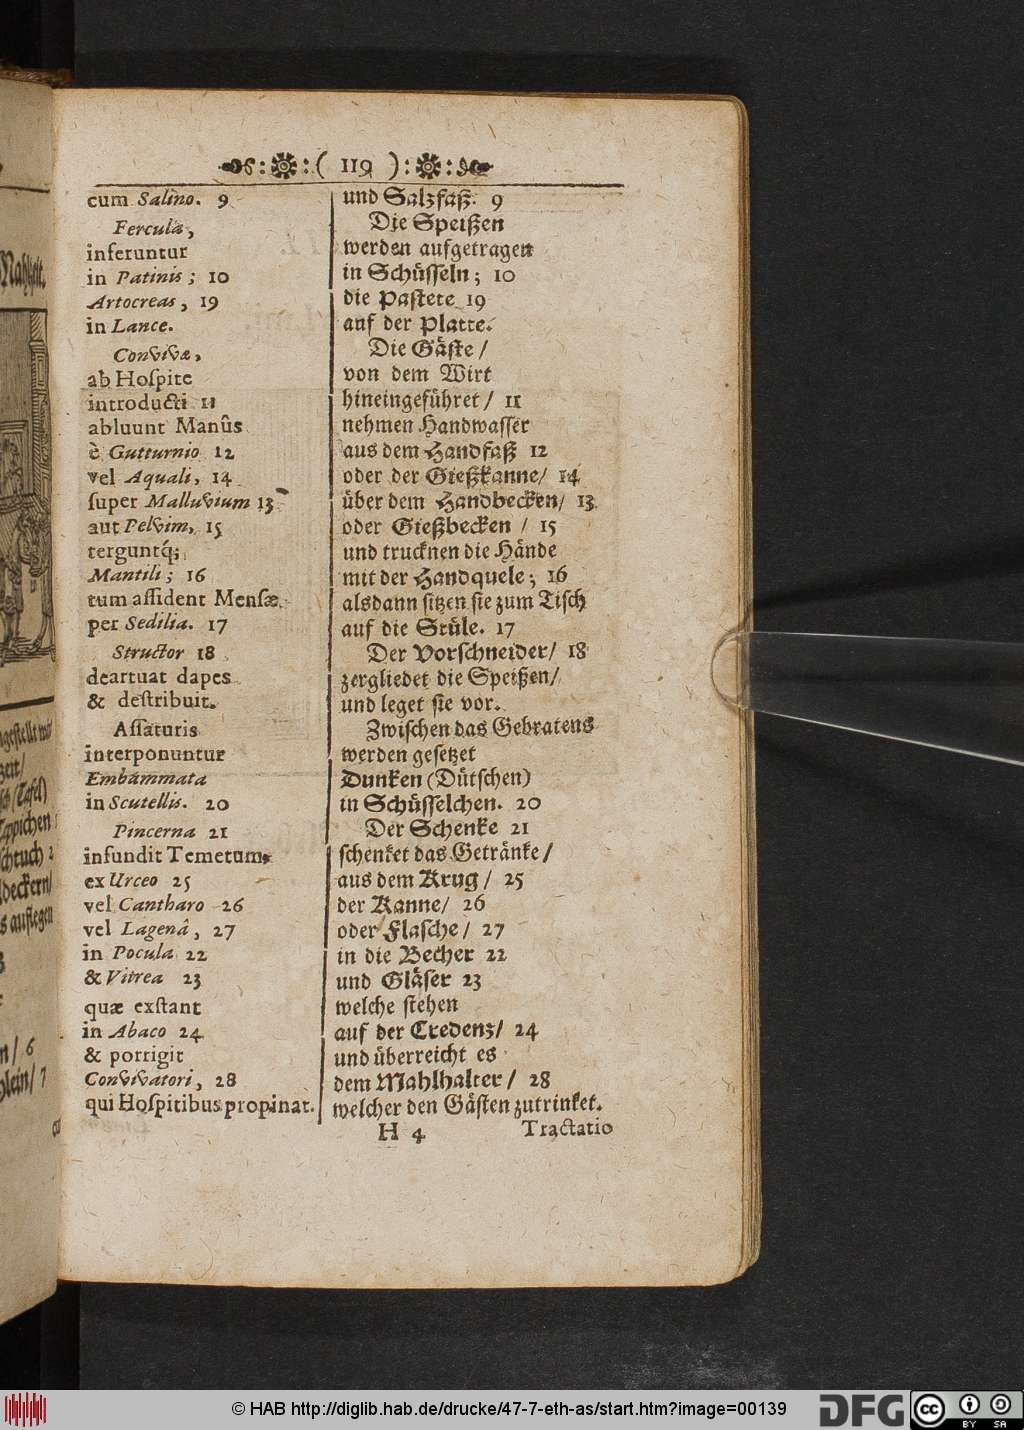 :( 119 ):
cum Salino. 9
Fercula,
inferuntur
in Patinis; 10
Artocreas, 19
in Lance.
Convivæ,
ab Hoſpite
introducti 11
abluunt Manûs
è Gutturnio 12
vel Aquali, 14
ſuper Malluvium 13
aut Pelvim, 15
terguntq́;
Mantili; 16
tum aſſident Menſæ
per Sedilia. 17
Structor 18
deartuat dapes
& deſtribuit.
Aſſaturis
interponuntur
Embammata
in Scutellis. 20
Pincerna 21
infundit Temetum,
ex Urceo 25
vel Cantharo 26
vel Lagenâ, 27
in Pocula 22
& Vitrea 23
quæ exſtant
in Abaco 24
& porrigit
Convivatori, 28
qui Hoſpitibus propinat.
und Salzfaß. 9
Die Speißen
werden aufgetragen
in Schüſſeln; 10
die Paſtete 19
auf der Platte.
Die Gäſte /
von dem Wirt
hineingeführet / 11
nehmen Handwaſſer
aus dem Handfaß 12
oder der Gießkanne/ 14
über dem Handbecken/ 13
oder Gießbecken / 15
und trucknen die Hände
mit der Handquele; 16
alsdann ſitzen ſie zum Tiſch
auf die Stüle. 17
Der Vorſchneider/ 18
zergliedet die Speißen/
und leget ſie vor.
Zwiſchen das Gebratens
werden geſetzet
Dunken (Dütſchen)
in Schüſſelchen. 20
Der Schenke 21
ſchenket das Getränke/
aus dem Krug / 25
der Kanne/ 26
oder Flaſche/ 27
in die Becher 22
und Gläſer 23
welche ſtehen
auf der Credenz/ 24
und überreicht es
dem Mahlhalter/ 28
welcher den Gäſten zutrinket.
H 4 Tractatio
© HAB http://diglib.hab.de/drucke/47-7-eth-as/start.htm?image=00139
DFG
cc BY SA